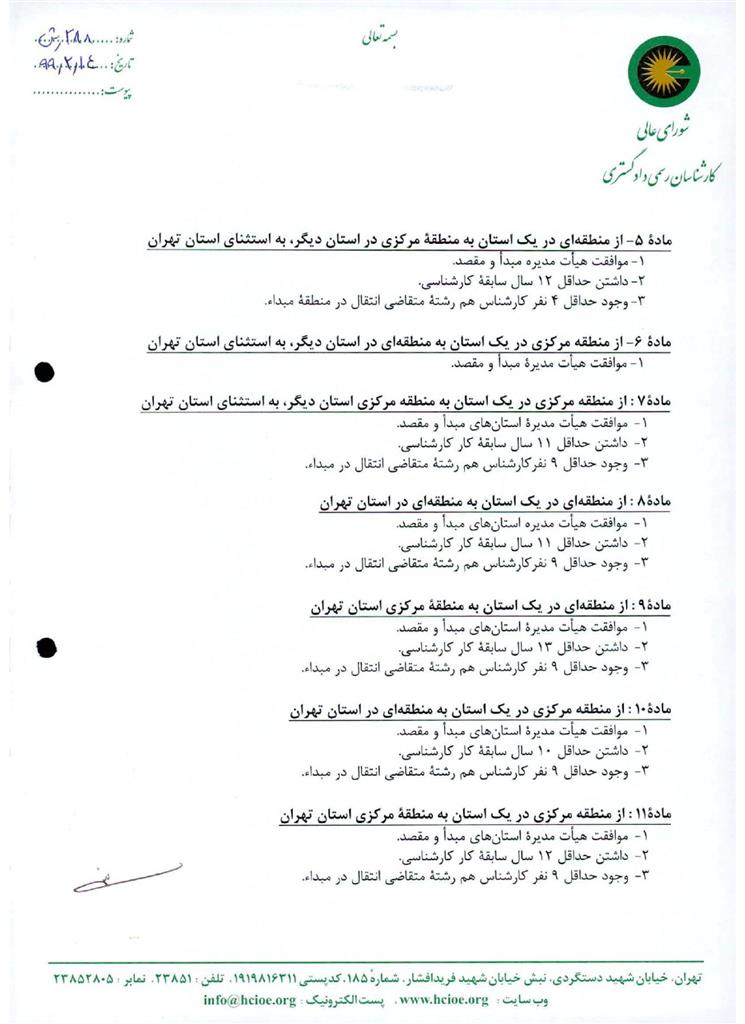 بسمه تعالی
شماره: ۲۸۸
تاریخ: ۹۹،۲،۱۴
پیوست:
شورای عالی
کارشناسان رسمی دادگستری
مادهٔ ۵- از منطقه‌ای در یک استان به منطقهٔ مرکزی در استان دیگر، به استثنای استان تهران
۱- موافقت هیأت مدیره مبدأ و مقصد.
۲- داشتن حداقل ۱۲ سال سابقهٔ کارشناسی.
۳- وجود حداقل ۴ نفر کارشناس هم رشتهٔ متقاضی انتقال در منطقهٔ مبداء.
مادهٔ ۶- از منطقه مرکزی در یک استان به منطقه‌ای در استان دیگر، به استثنای استان تهران
۱- موافقت هیأت مدیرهٔ مبدأ و مقصد.
مادهٔ ۷: از منطقه مرکزی در یک استان به منطقه مرکزی استان دیگر، به استثنای استان تهران
۱- موافقت هیأت مدیرهٔ استان‌های مبدأ و مقصد.
۲- داشتن حداقل ۱۱ سال سابقهٔ کار کارشناسی.
۳- وجود حداقل ۹ نفرکارشناس هم رشتهٔ متقاضی انتقال در مبداء.
مادهٔ ۸: از منطقه‌ای در یک استان به منطقه‌ای در استان تهران
۱- موافقت هیأت مدیرهٔ استان‌های مبدأ و مقصد.
۲- داشتن حداقل ۱۱ سال سابقهٔ کار کارشناسی.
۳- وجود حداقل ۹ نفرکارشناس هم رشتهٔ متقاضی انتقال در مبداء.
مادهٔ ۹: از منطقه‌ای در یک استان به منطقهٔ مرکزی استان تهران
۱- موافقت هیأت مدیرهٔ استان‌های مبدأ و مقصد.
۲- داشتن حداقل ۱۳ سال سابقهٔ کار کارشناسی.
۳- وجود حداقل ۹ نفر کارشناس هم رشتهٔ متقاضی انتقال در مبداء.
مادهٔ ۱۰: از منطقه مرکزی در یک استان به منطقه‌ای در استان تهران
۱- موافقت هیأت مدیرهٔ استان‌های مبدأ و مقصد.
۲- داشتن حداقل ۱۰ سال سابقهٔ کار کارشناسی.
۳- وجود حداقل ۹ نفر کارشناس هم رشتهٔ متقاضی انتقال در مبداء.
مادهٔ ۱۱: از منطقه مرکزی در یک استان به منطقهٔ مرکزی استان تهران
۱- موافقت هیأت مدیرهٔ استان‌های مبدأ و مقصد.
۲- داشتن حداقل ۱۲ سال سابقهٔ کار کارشناسی.
۳- وجود حداقل ۹ نفر کارشناس هم رشتهٔ متقاضی انتقال در مبداء.
تهران، خیابان شهید دستگردی، نبش خیابان شهید فریدافشار، شمارهٔ ۱۸۵، کدپستی ۱۹۱۹۸۱۶۳۱۱، تلفن : ۲۳۸۵۱، نمابر : ۲۳۸۵۲۸۰۵
وب سایت : www.hcioe.org ، پست الکترونیک : info@hcioe.org